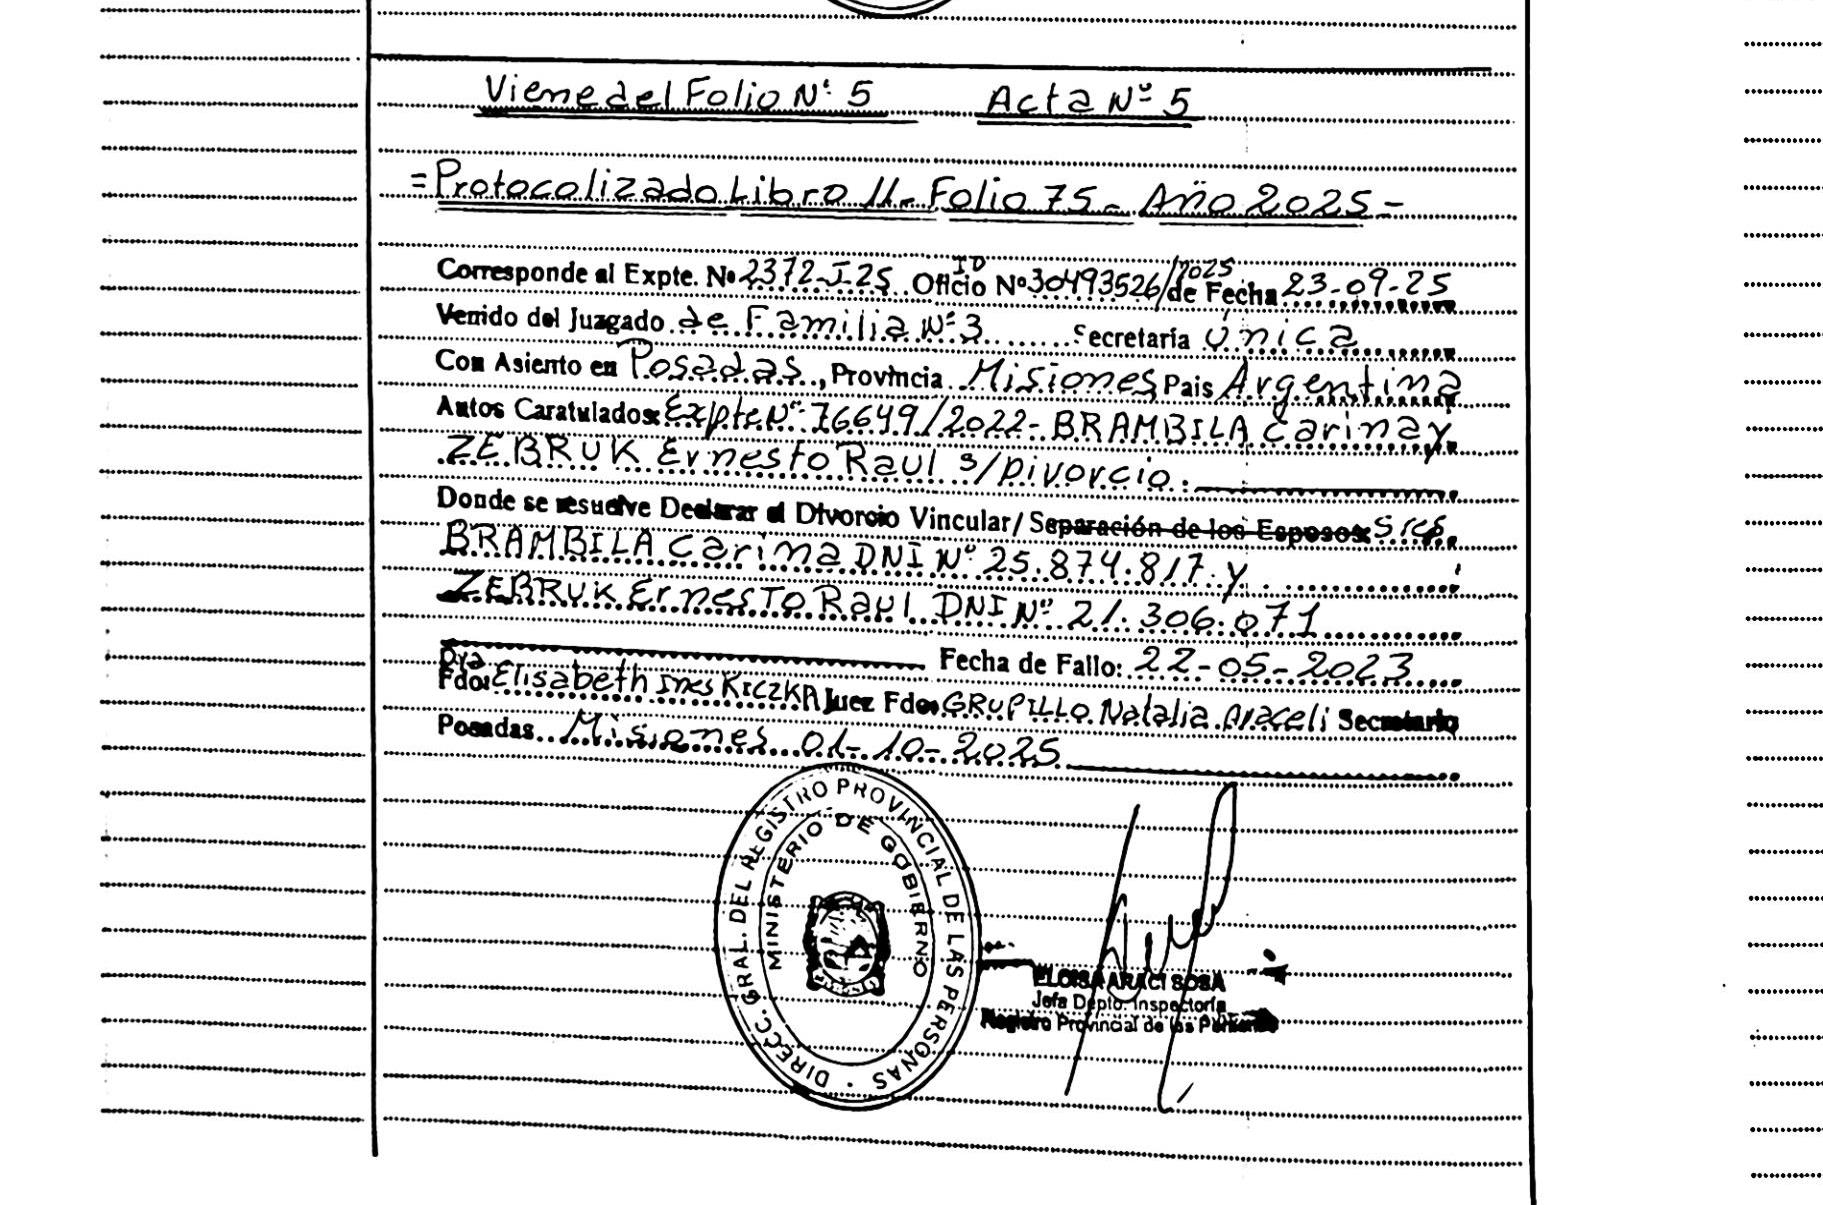 Viene del Folio Nº 5 Acta Nº 5
=Protocolizado Libro 11- Folio 75- Año 2025-
Corresponde al Expte. Nº 2372-I-25 Oficio ID Nº 30493526/2025 de Fecha 23-09-25
Venido del Juzgado de Familia Nº 3 Secretaría Única
Con Asiento en Posadas, Provincia Misiones País Argentina
Autos Caratulados: Expte Nº 76649/2022- BRAMBILA Carina y
ZEBRUK Ernesto Raul s/Divorcio.
Donde se resuelve Declarar el Divorcio Vincular/ Separación de los Esposos: Sres.
BRAMBILA Carina DNI Nº 25.874.817 y
ZEBRUK Ernesto Raul DNI Nº 21.306.071
Fecha de Fallo: 22-05-2023
Dra
Fdo: Elisabeth Ines KICZKA Juez Fdo: GRUPILLO Natalia Araceli Secretario
Posadas. Misiones 01-10-2025
DIRECC. GRAL. DEL REGISTRO PROVINCIAL DE LAS PERSONAS
MINISTERIO DE GOBIERNO
ELOISA ARACI SOSA
Jefa Depto. Inspectoría
Registro Provincial de las Personas